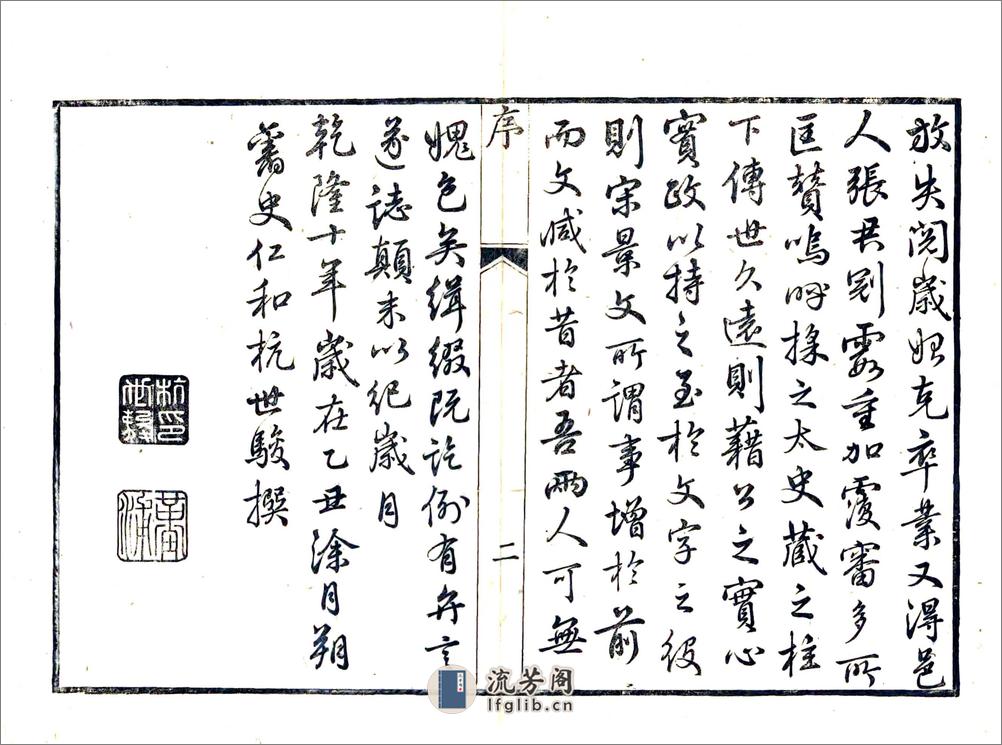 放失閱歲始克卒業又得邑
人張君剡霞重加覆審多所
匡贊嗚呼採之太史藏之柱
下傳世久遠則藉公之實心
實政以持之至於文字之役
則宋景文所謂事增於前
而文減於昔者吾兩人可無
序
二
媿色矣緝綴既訖例有弁言
遂誌顛末以紀歲月
乾隆十年歲在乙丑涂月朔
舊史仁和杭世駿撰
杭世駿印
堇浦
流芳阁
lfglib.cn